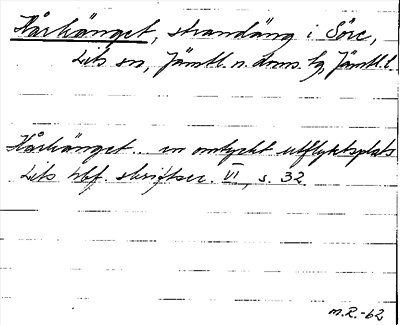 Hårkänget, strandäng i Söre,
Lits sn, Jämtl. n. doms. lg, Jämtl. l.
Hårkänget... en omtyckt utflyktsplats
Lits hbf. skriftser. VI, s. 32
M.R.-62